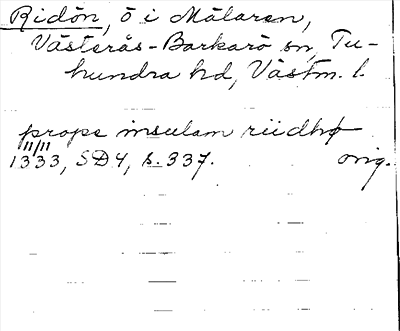 Ridön, ö i Mälaren,
Västerås-Barkarö sn, Tu-
hundra hd, Västm. l.
prope insulam riidhø
11/11
1333, SD4, s. 337. orig.